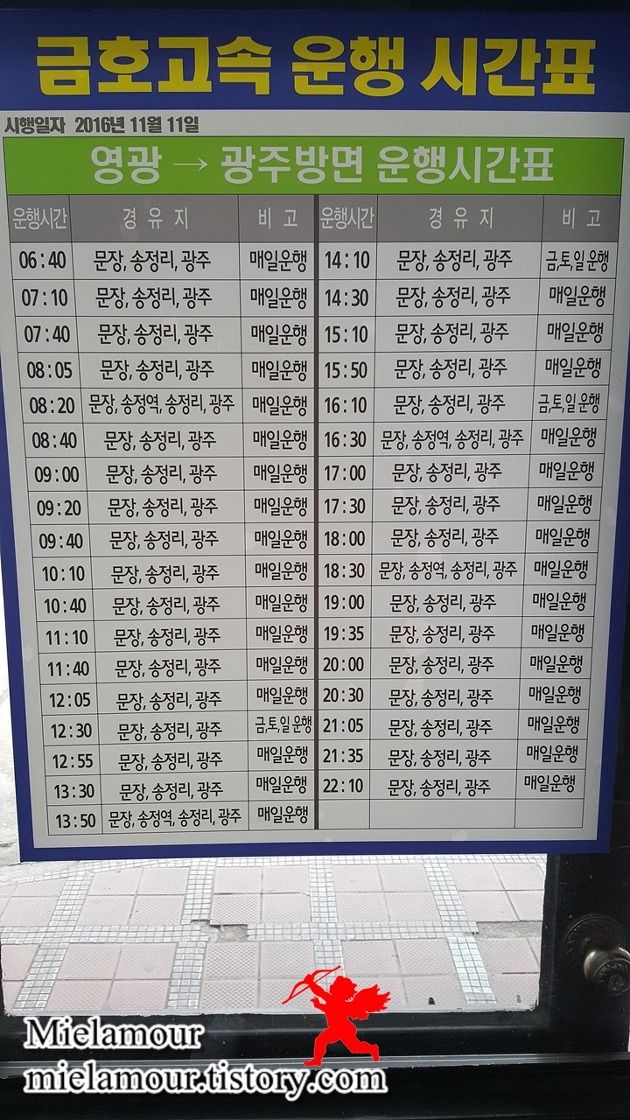 금호고속 운행 시간표
시행일자 2016년 11월 11일
영광 → 광주방면 운행시간표
운행시간 경유지 비고 운행시간 경유지 비고
06:40 문장, 송정리, 광주 매일운행 14:10 문장, 송정리, 광주 금,토,일 운행
07:10 문장, 송정리, 광주 매일운행 14:30 문장, 송정리, 광주 매일운행
07:40 문장, 송정리, 광주 매일운행 15:10 문장, 송정리, 광주 매일운행
08:05 문장, 송정리, 광주 매일운행 15:50 문장, 송정리, 광주 매일운행
08:20 문장, 송정역, 송정리, 광주 매일운행 16:10 문장, 송정리, 광주 금,토,일 운행
08:40 문장, 송정리, 광주 매일운행 16:30 문장, 송정역, 송정리, 광주 매일운행
09:00 문장, 송정리, 광주 매일운행 17:00 문장, 송정리, 광주 매일운행
09:20 문장, 송정리, 광주 매일운행 17:30 문장, 송정리, 광주 매일운행
09:40 문장, 송정리, 광주 매일운행 18:00 문장, 송정리, 광주 매일운행
10:10 문장, 송정리, 광주 매일운행 18:30 문장, 송정역, 송정리, 광주 매일운행
10:40 문장, 송정리, 광주 매일운행 19:00 문장, 송정리, 광주 매일운행
11:10 문장, 송정리, 광주 매일운행 19:35 문장, 송정리, 광주 매일운행
11:40 문장, 송정리, 광주 매일운행 20:00 문장, 송정리, 광주 매일운행
12:05 문장, 송정리, 광주 매일운행 20:30 문장, 송정리, 광주 매일운행
12:30 문장, 송정리, 광주 금,토,일 운행 21:05 문장, 송정리, 광주 매일운행
12:55 문장, 송정리, 광주 매일운행 21:35 문장, 송정리, 광주 매일운행
13:30 문장, 송정리, 광주 매일운행 22:10 문장, 송정리, 광주 매일운행
13:50 문장, 송정역, 송정리, 광주 매일운행
Mielamour
mielamour.tistory.com